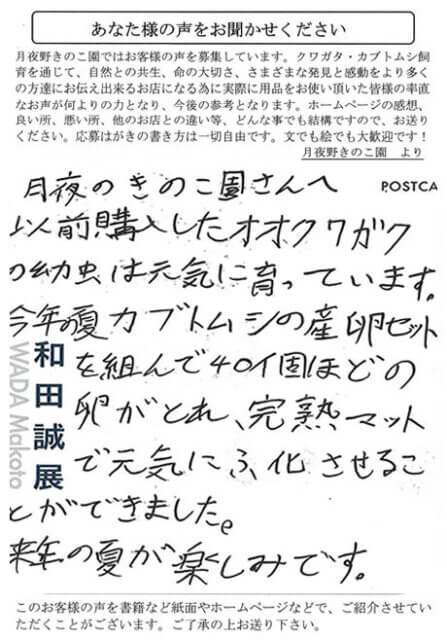 あなた様の声をお聞かせください
月夜野きのこ園ではお客様の声を募集しています。クワガタ・カブトムシ飼
育を通じて、自然との共生、命の大切さ、さまざまな発見と感動をより多く
の方達にお伝え出来るお店になる為に実際に用品をお使い頂いた皆様の率直
なお声が何よりの力となり、今後の参考となります。ホームページの感想、
良い所、悪い所、他のお店との違い等、どんな事でも結構ですので、お送り
ください。応募はがきの書き方は一切自由です。文でも絵でも大歓迎です！
月夜野きのこ園　より
POSTCA
月夜のきのこ園さんへ
以前購入したオオクワガク
の幼虫は元気に育っています。
今年の夏カブトムシの産卵セット
を組んで40イ固ほどの
卵がとれ、完熟マット
で元気にふ化させるこ
とができました。
来年の夏が楽しみです。
和田誠展
WADA Makoto
このお客様の声を書籍など紙面やホームページなどで、ご紹介させてい
ただくことがございます。ご了承の上お送り下さい。